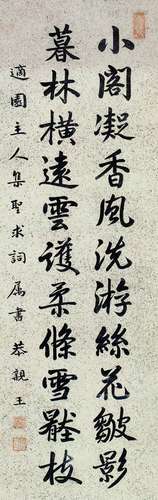 小閣凝香風洗游絲花皺影
暮林橫遠雲護柔條雪壓枝
適園主人集聖求詞屬書 恭親王